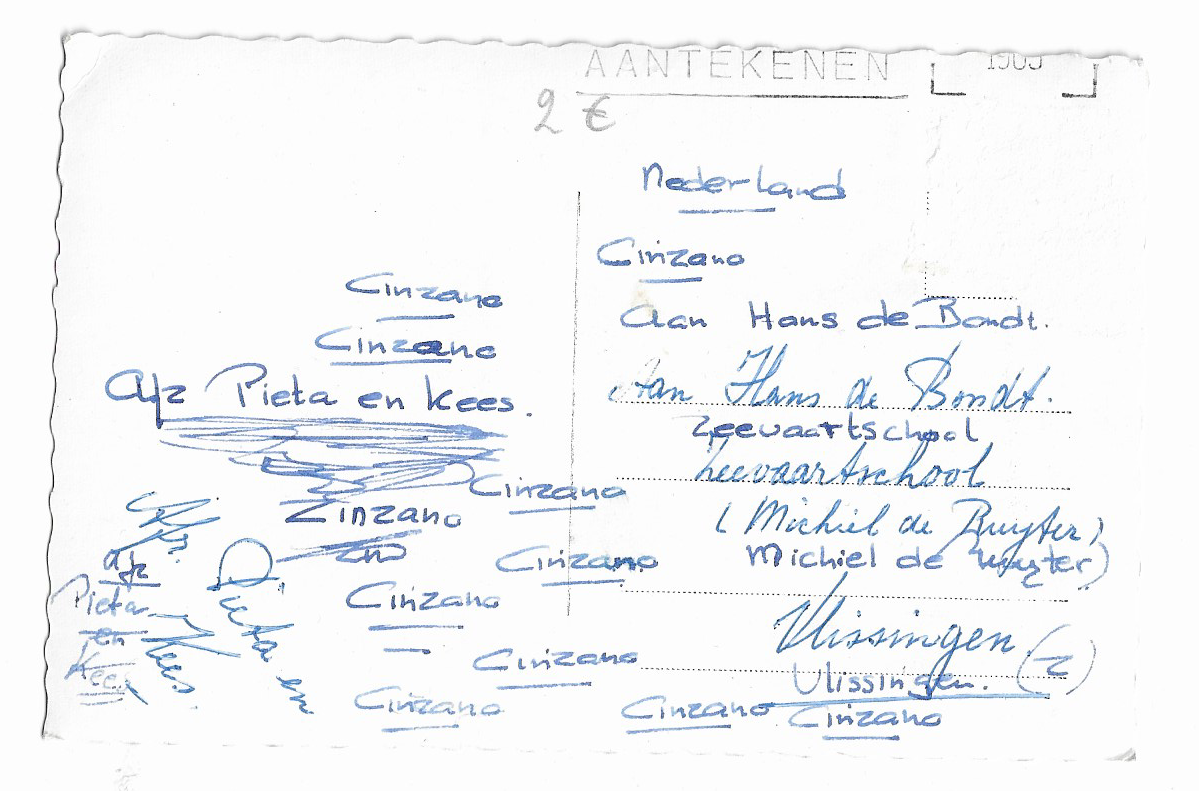 AANTEKENEN
2 €
Nederland
Cinzano
Aan Hans de Bondt.
Aan Hans de Bondt.
Zeevaartschool
Zeevaartschool
(Michiel de Ruyter)
Michiel de Ruyter)
Vlissingen
(Z)
Vlissingen.
Cinzano Cinzano
Cinzano
Cinzano
Afz Pieta en Kees.
Cinzano
Zinzano
Cinzano
Cinzano
Cinzano
Cinzano
Afz.
Pieta en
Kees.
Afz
Pieta
en
Kees